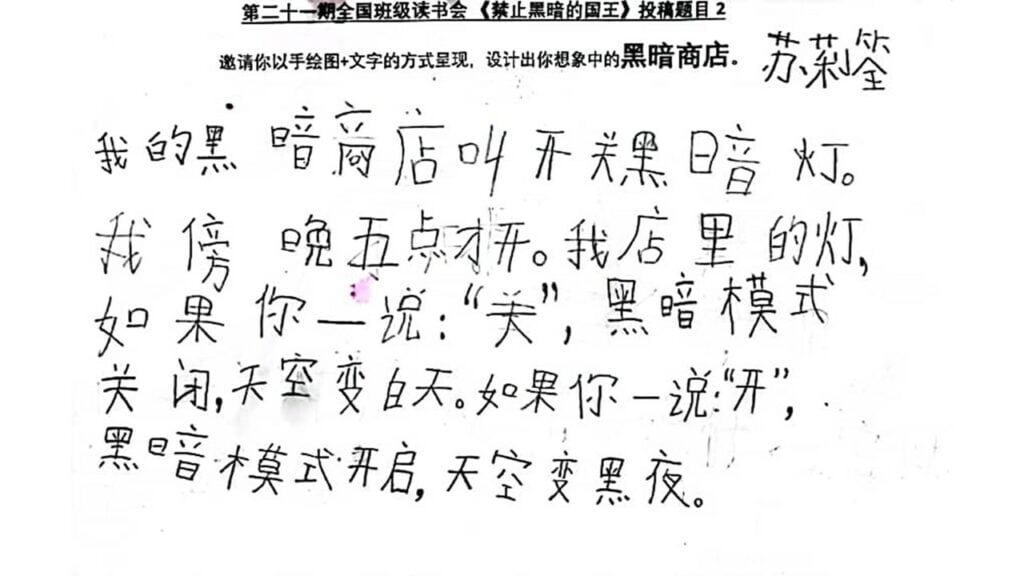 第二十一期全国班级读书会 《禁止黑暗的国王》投稿题目 2
邀请你以手绘图+文字的方式呈现，设计出你想象中的黑暗商店。
苏莉筌
我的黑暗商店叫开关黑暗灯。
我傍晚五点才开。我店里的灯,
如果你一说:“关”,黑暗模式
关闭,天空变白天。如果你一说:“开”,
黑暗模式开启,天空变黑夜。